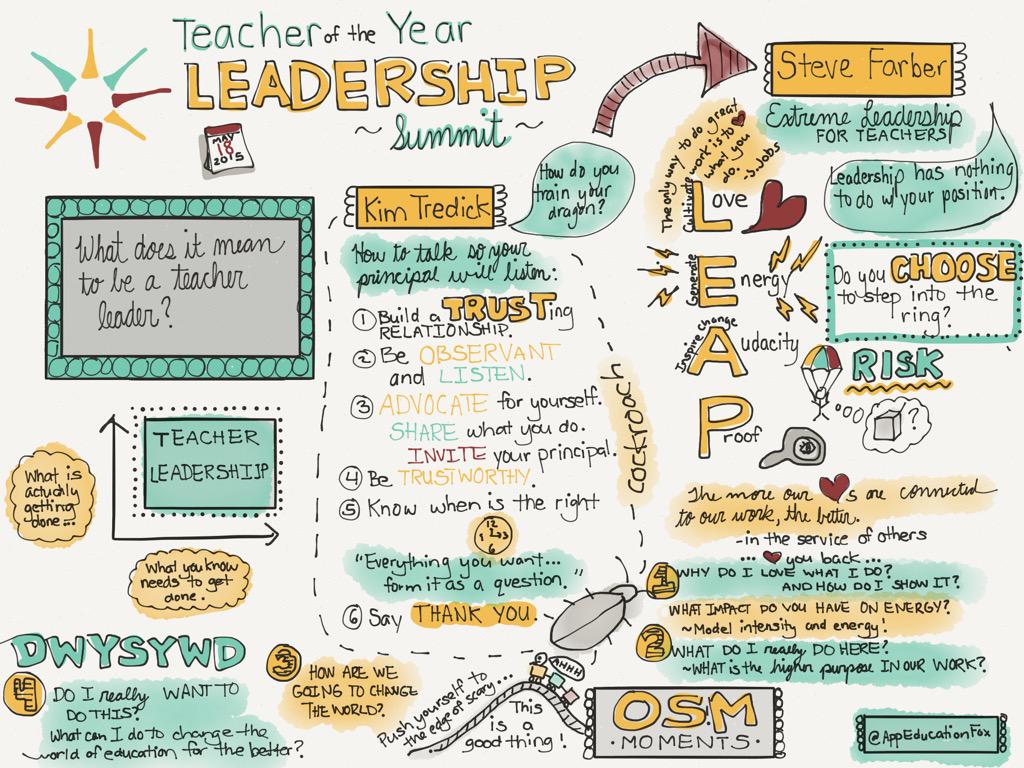 Teacher of the Year
LEADERSHIP
~ Summit ~
MAY
18
2015
What does it mean
to be a teacher
leader?
TEACHER
LEADERSHIP
What is
actually
getting
done...
What you know
needs to get
done.
Kim Tredick
How do you
train your
dragon?
How to talk so your
principal will listen:
1 Build a TRUSTing
RELATIONSHIP.
2 Be OBSERVANT
and LISTEN.
3 ADVOCATE for yourself.
SHARE what you do.
INVITE your principal.
4 Be TRUSTWORTHY.
5 Know when is the right
12
3
6
"Everything you want...
form it as a question."
6 Say THANK YOU.
cockroach
Steve Farber
Extreme Leadership
FOR TEACHERS
The only way to do great
work is to
what you
do.
-S. Jobs
Leadership has nothing
to do w/ your position.
Cultivate
Love
Generate
Energy
Inspire Change
Audacity
Proof
Do you CHOOSE
to step into the
ring?
RISK
?
The more our ♥s are connected
to our work, the better.
-in the service of others
... ♥ you back...
1 WHY DO I LOVE WHAT I DO?
AND HOW DO I SHOW IT?
WHAT IMPACT DO YOU HAVE ON ENERGY?
~Model intensity and energy!
2 WHAT DO I really DO HERE?
~WHAT IS the higher purpose IN OUR WORK?
3 HOW ARE WE
GOING TO CHANGE
THE WORLD?
DWYSYWD
DO I really WANT TO
DO THIS?
What can I do to change the
world of education for the better?
Push yourself to
the edge of scary...
AHHH
This
is a
good thing!
OSM
·MOMENTS·
@AppEducationFox